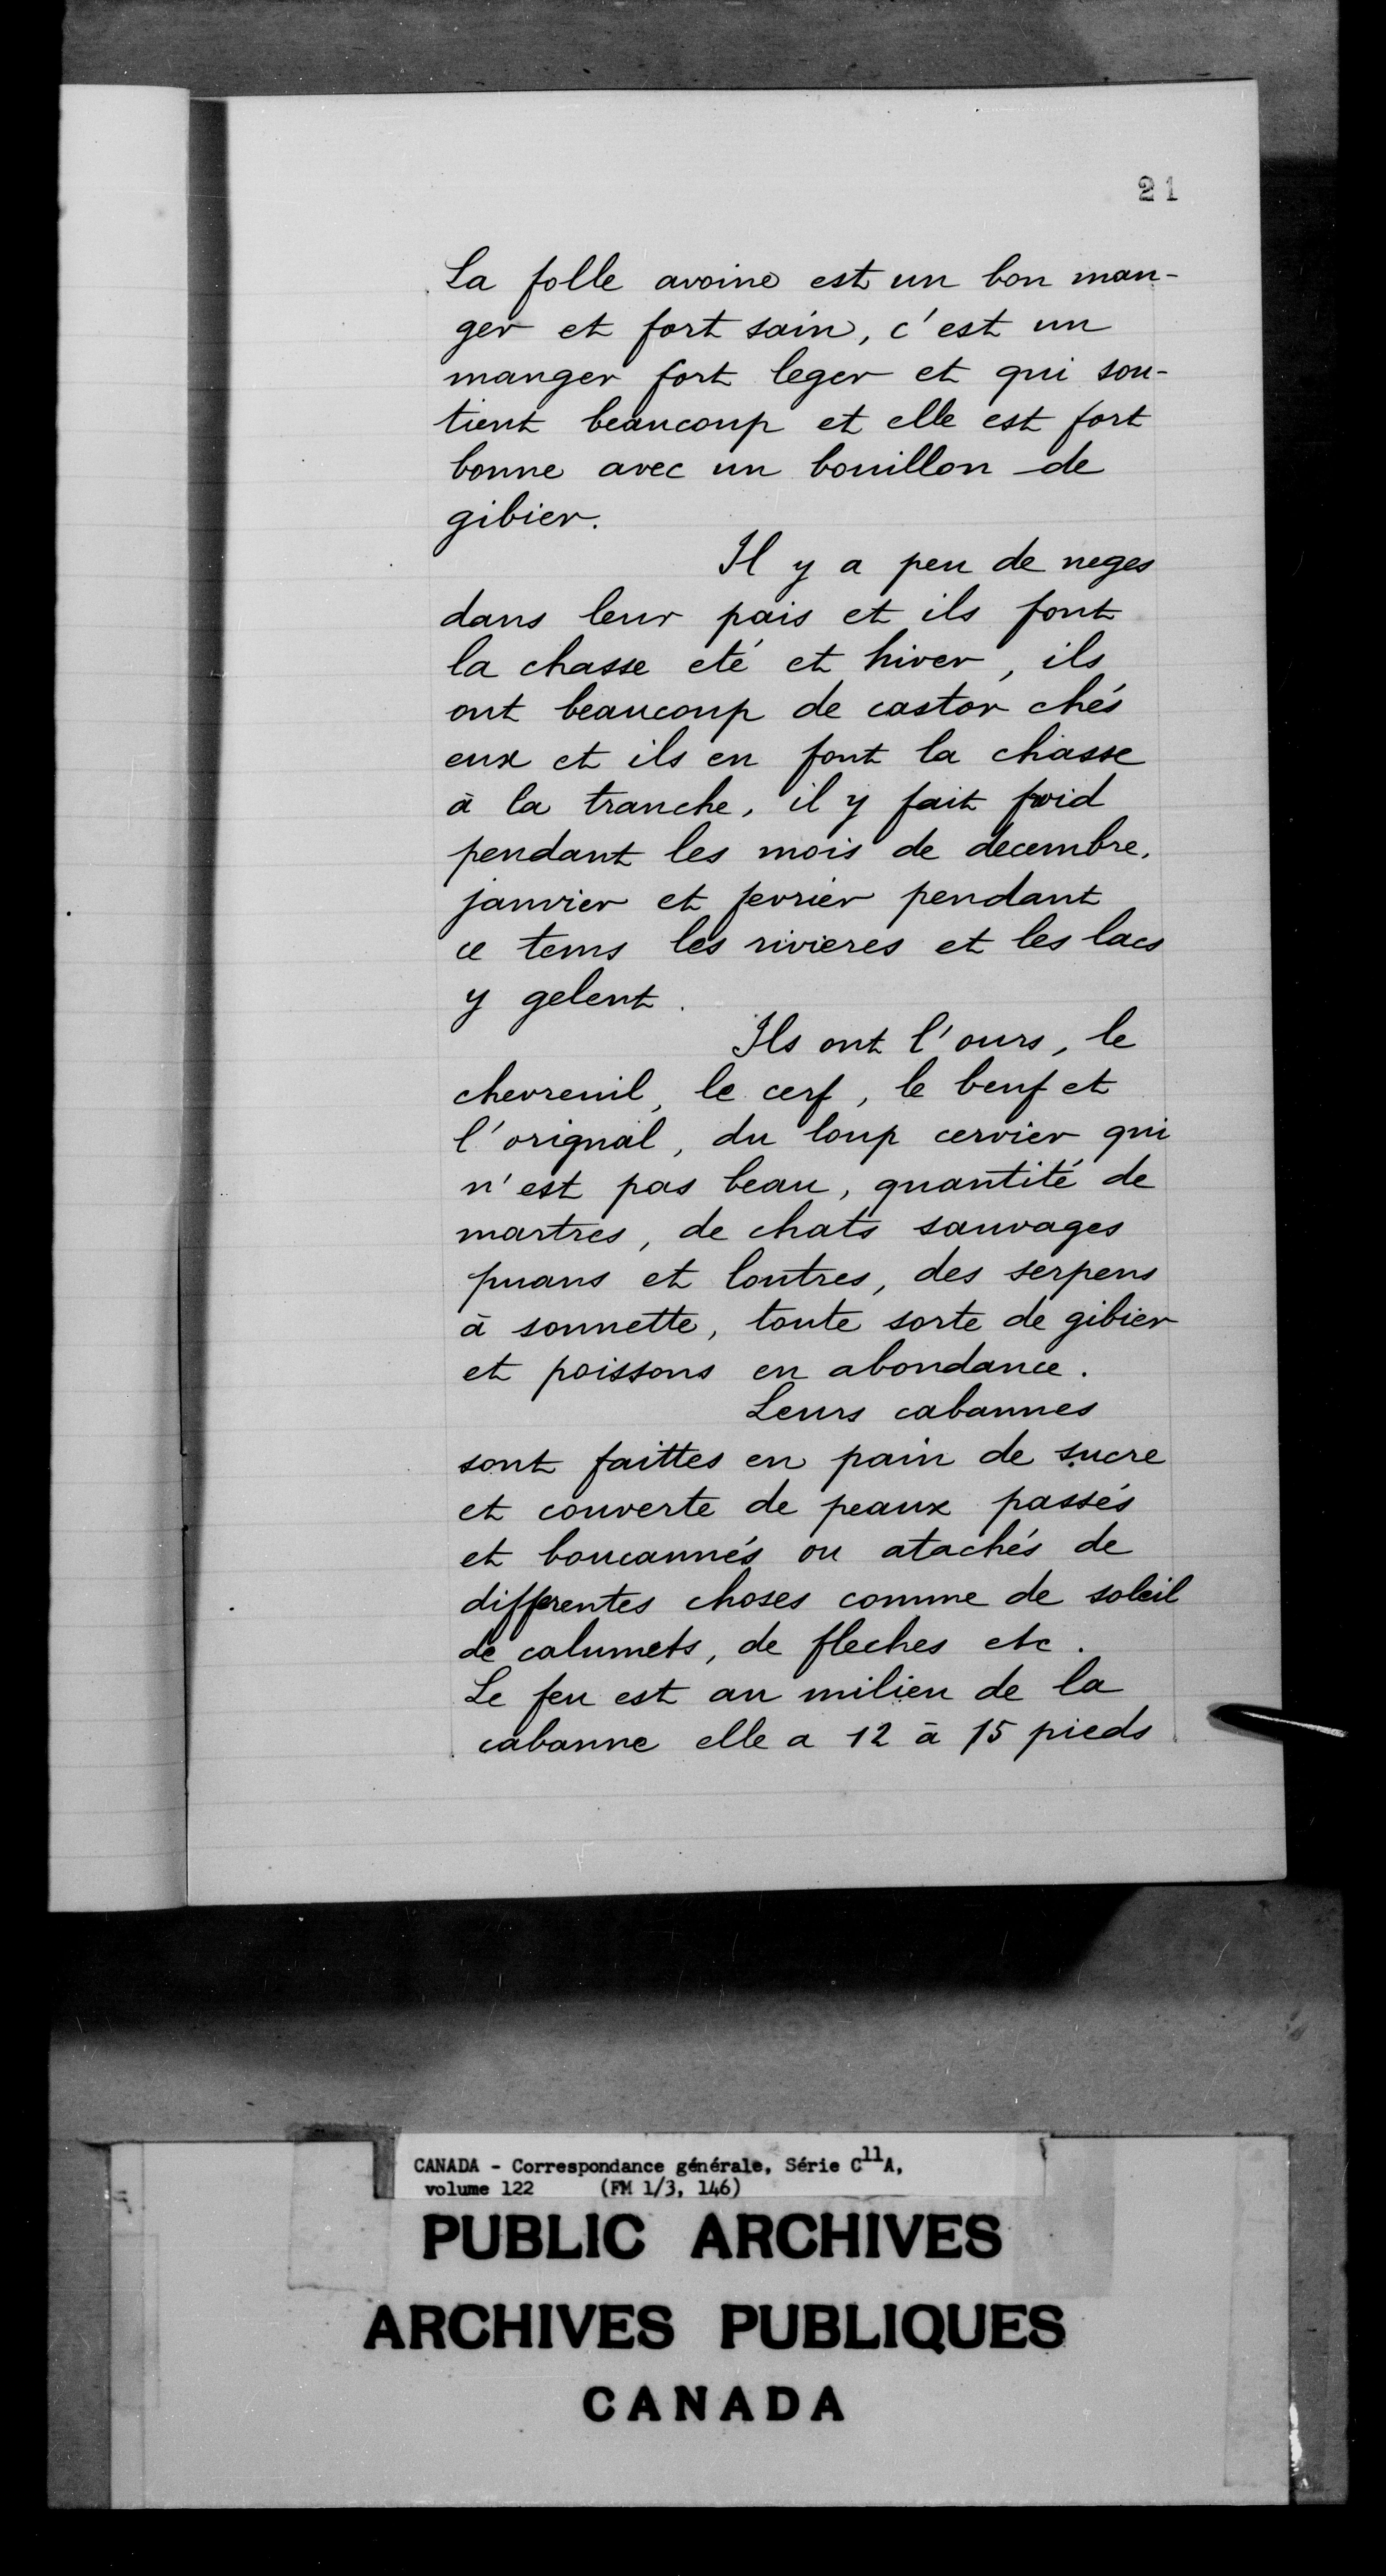 21
La folle avoine est un bon man-
ger et fort sain, c'est un
manger fort leger et qui sou-
tient beaucoup et elle est fort
bonne avec un bouillon de
gibier.
Il y a peu de neges
dans leur pais et ils font
la chasse eté et hiver, ils
ont beaucoup de castor chés
eux et ils en font la chasse
à la tranche, il y fait froid
pendant les mois de decembre,
janvier et fevrier pendant
ce tems les rivieres et les lacs
y gelent.
Ils ont l'ours, le
chevreuil, le cerf, le beuf et
l'orignal, du loup cervier qui
n'est pas beau, quantité de
martres, de chats sauvages
puans et loutres, des serpens
à sonnette, toute sorte de gibier
et poissons en abondance.
Leurs cabannes
sont faittes en pain de sucre
et couverte de peaux passés
et boucannés ou atachés de
differentes choses comme de soleil
de calumets, de fleches etc.
Le feu est au milieu de la
cabanne elle a 12 à 15 pieds
CANADA - Correspondance générale, Série C11A,
volume 122 (FM 1/3, 146)
PUBLIC ARCHIVES
ARCHIVES PUBLIQUES
CANADA